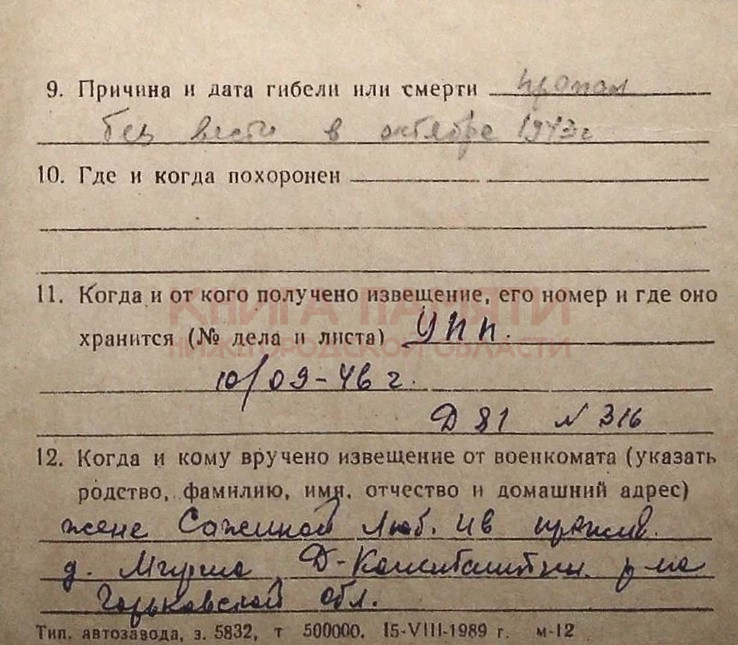 9. Причина и дата гибели или смерти пропал
без вести в октябре 1943 г
10. Где и когда похоронен
11. Когда и от кого получено извещение, его номер и где оно
КНИГА ПАМЯТИ
хранится (№ дела и листа) УПП.
НИЖЕГОРОДСКОЙ ОБЛАСТИ
10/09-46 г.
Д 81 N 316
12. Когда и кому вручено извещение от военкомата (указать
родство, фамилию, имя, отчество и домашний адрес)
жене Сажиной Люб. Ив прожив.
д. Д-Константин. р-на
Горьковской обл.
Тип. автозавода, з. 5832, т 500000. 15-VIII-1989 г. м-12